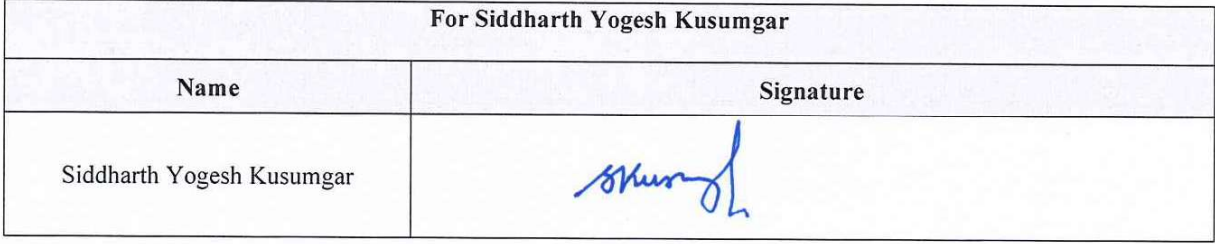 For Siddharth Yogesh Kusumgar
Name
Signature
Siddharth Yogesh Kusumgar